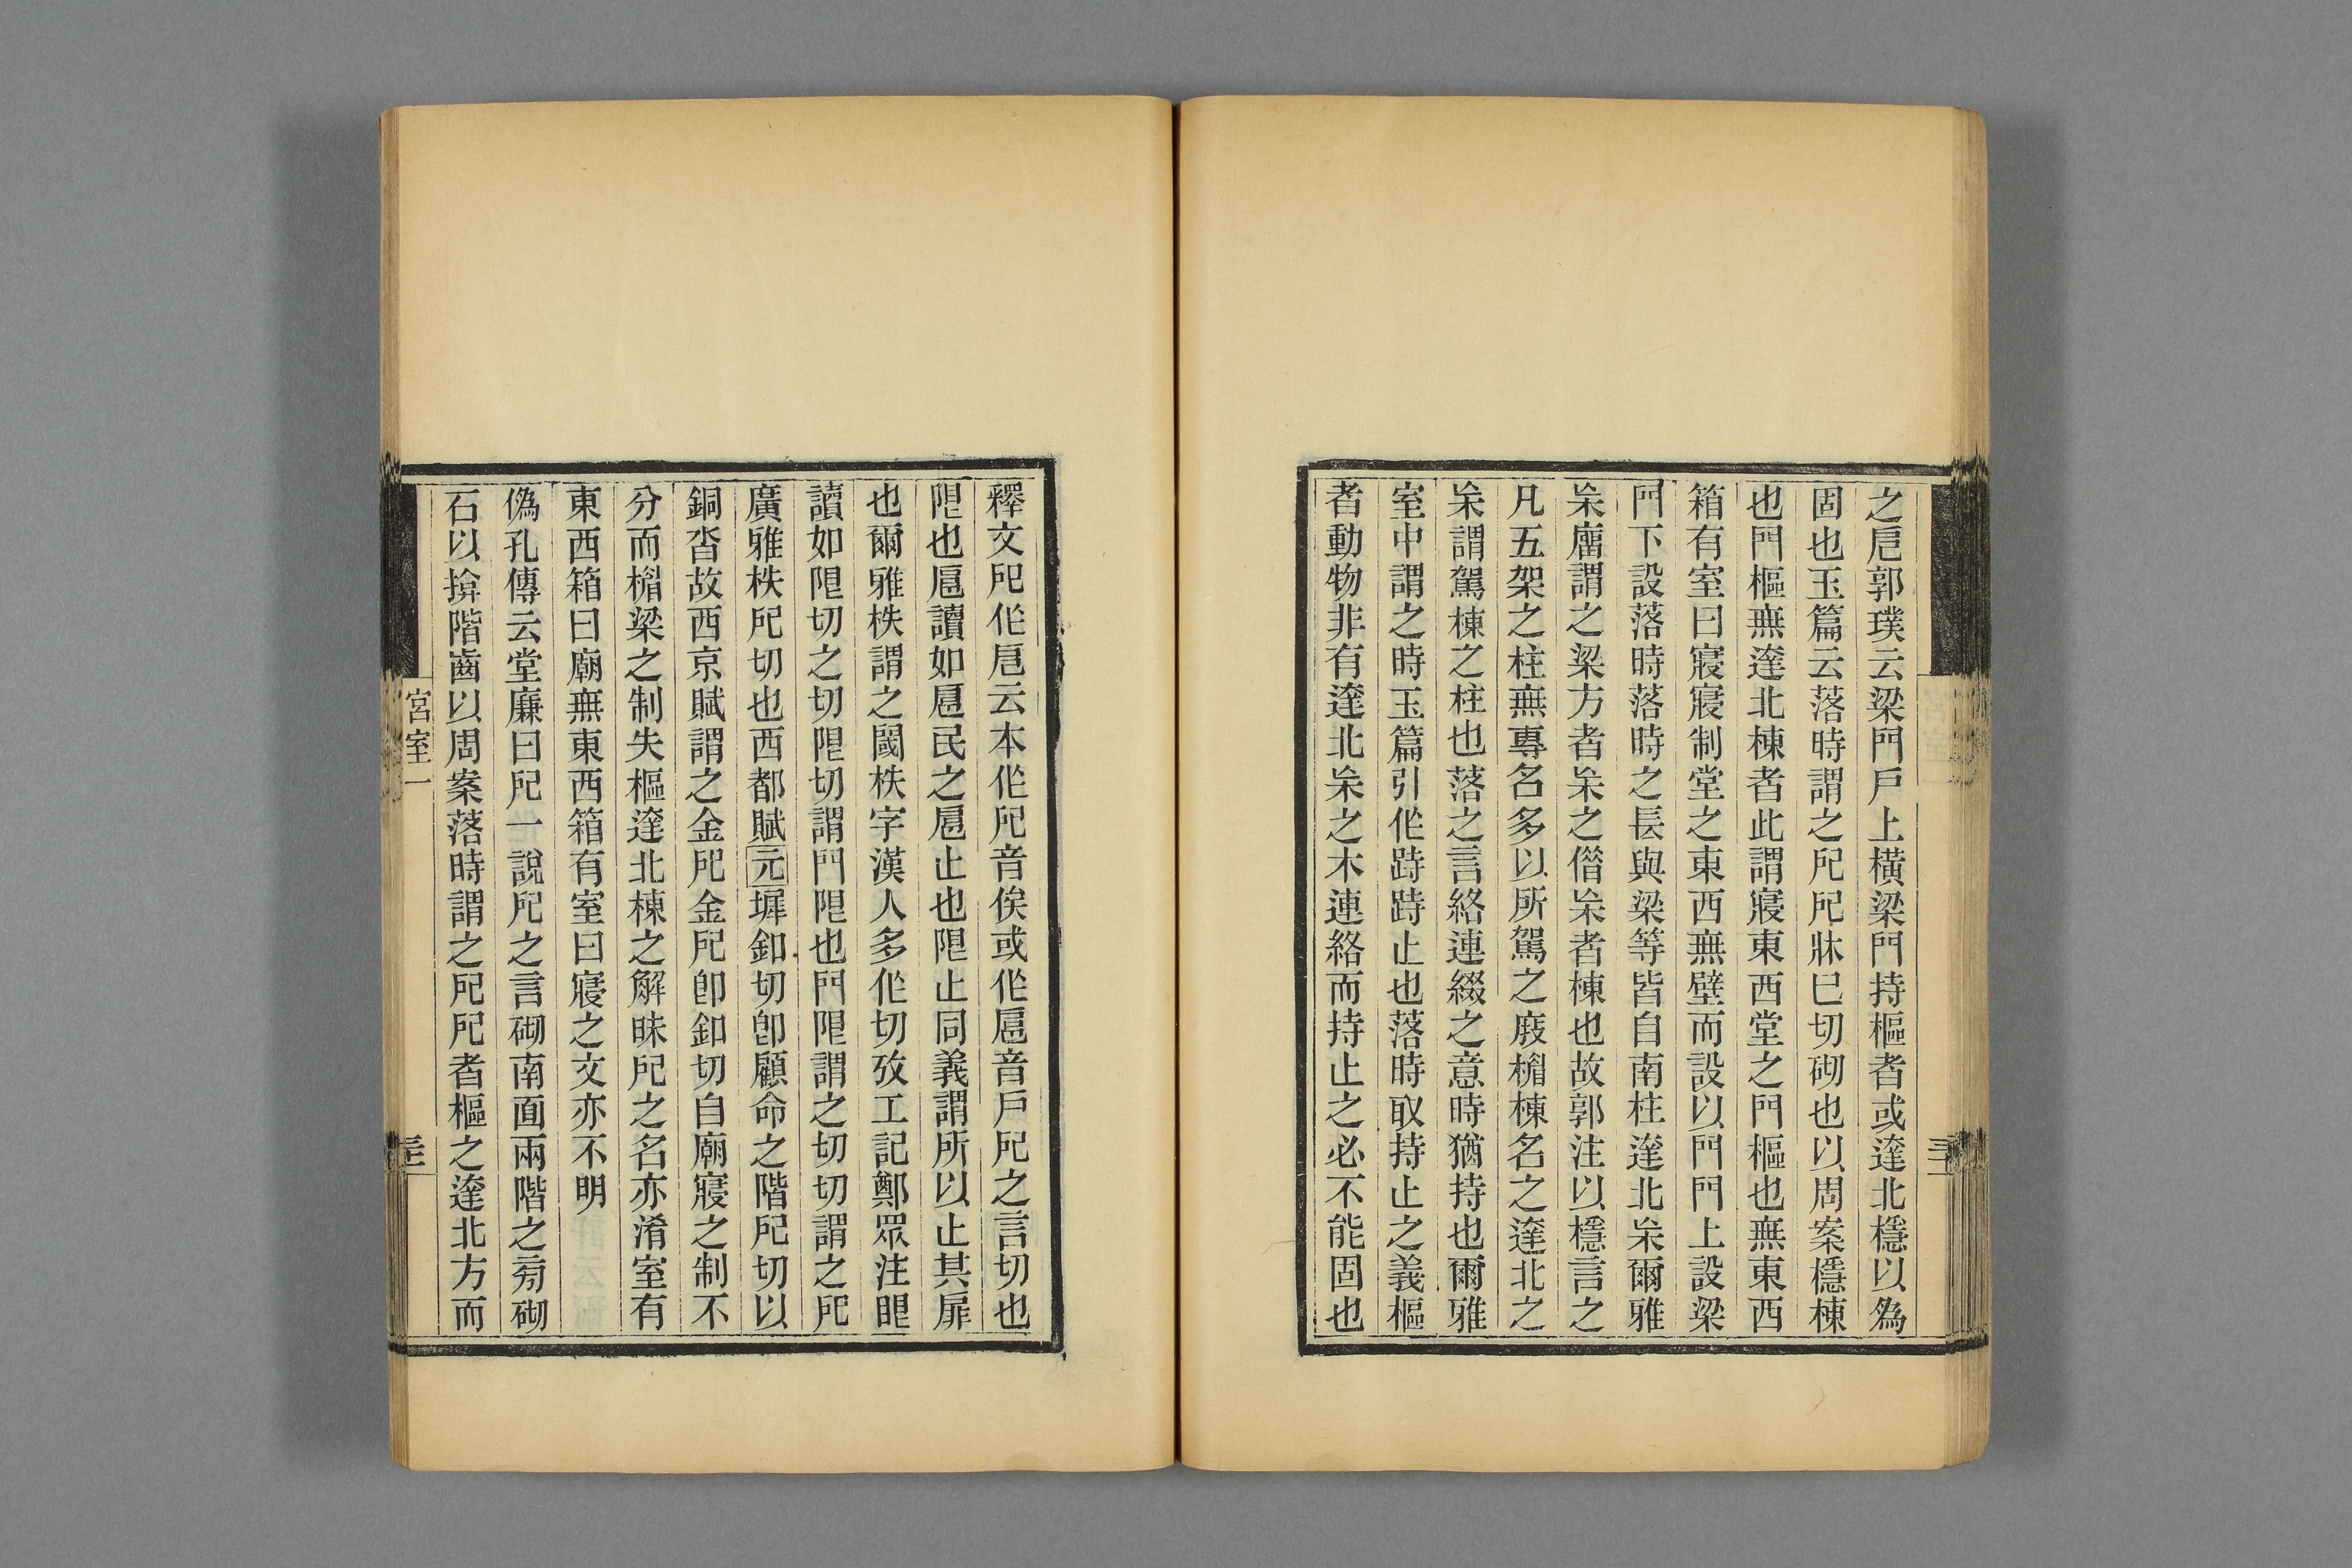 之戹郭璞云梁門戶上橫梁門持樞者或達北檼以爲
固也玉篇云落時謂之戺戺牀巳切砌也以周案檼棟
也門樞無達北棟者此謂寢東西堂之門樞也無東西
箱有室曰寢寢制堂之東西無壁而設以門門上設梁
門下設落時落時之長與梁等皆自南柱達北㭒爾雅
㭒廇謂之梁方者㭒之僭㭒者棟也故郭注以檼言之
凡五架之柱無專名多以所駕之庪楣棟名之達北之
㭒謂駕棟之柱也落之言絡連綴之意時猶持也爾雅
室中謂之時玉篇引作跱跱止也落時取持止之義樞
者動物非有達北㭒之木連絡而持止之必不能固也
釋文戺作戹云本作戺音俟或作扈音戶戺之言切也
阻也扈讀如扈民之扈止也阻止同義謂所以止其扉
也爾雅柣謂之閾柣字漢人多作切攷工記鄭眾注眼
讀如限切之切限切謂門限也門限謂之切切謂之戺
廣雅柣戺切也西都賦元墀釦切卽顧命之階戺切以
銅沓故西京賦謂之金戺金戺卽釦切自廟寢之制不
分而楣梁之制失樞達北棟之解昧戺之名亦淆室有
東西箱曰廟無東西箱有室曰寢之文亦不明
偽孔傳云堂廉曰戺一說戺之言砌南面兩階之㫄砌
石以揜階齒以周案落時謂之戺戺者樞之達北方而
宮室一